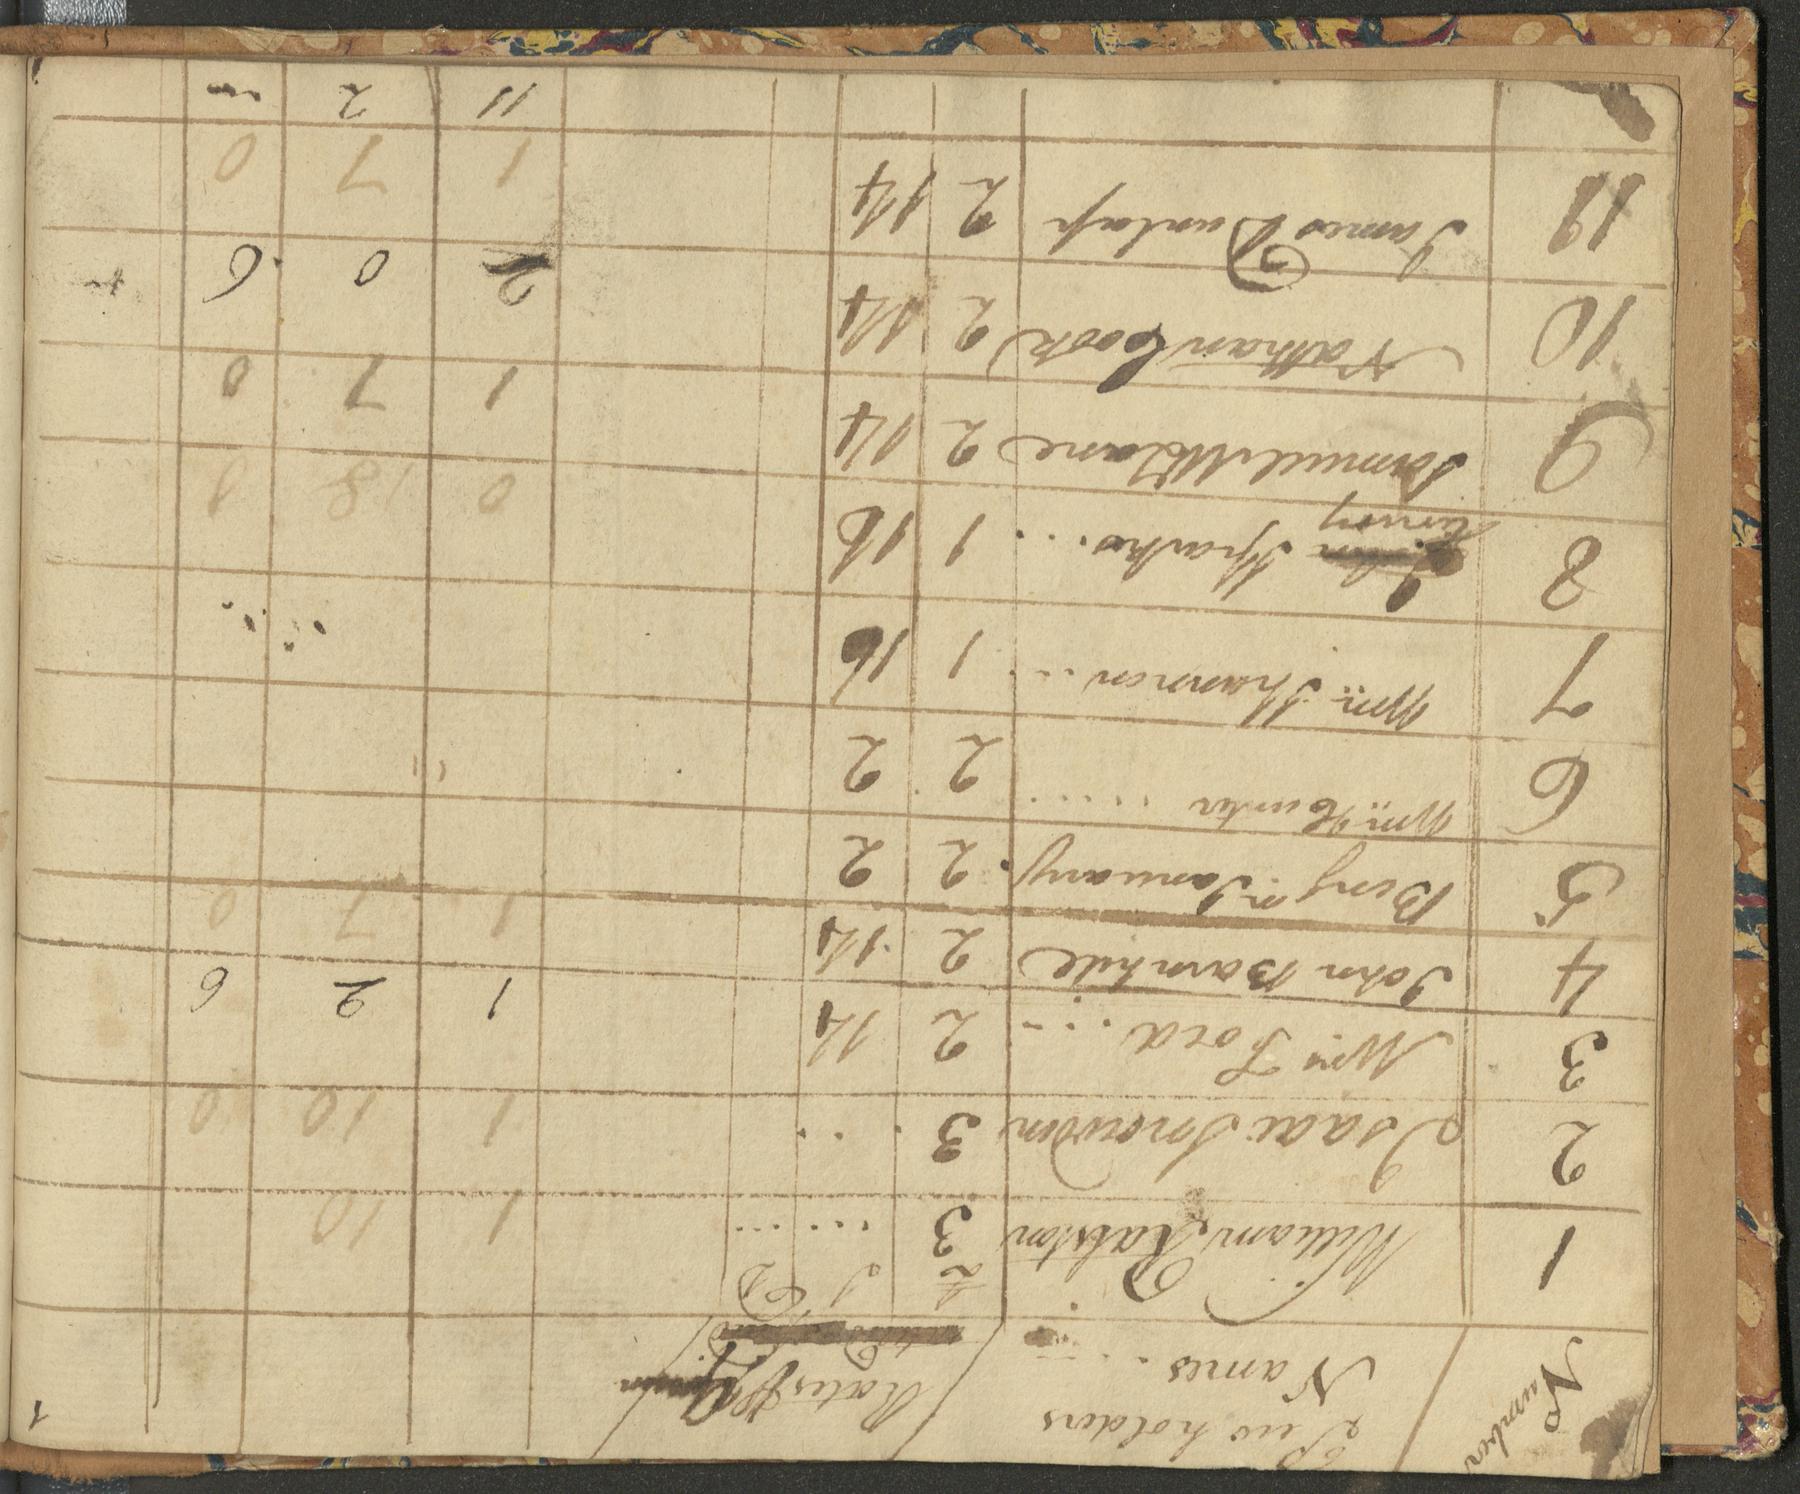 Number Pew holders
Names Rates
£ S D
1 William Ralston 3 .... ... 1 10
2 Isaac Snowden 3 . . . 1 10 0
3 Wm Ford .... 2 14 1 2 6
4 John Barnhill 2 14 1 7 0
5 Benjn January 2 2
6 Wm Hunter ..... 2 2
7 Wm Shannon ... 1 16
8 John Sparks ... 1 16 0 18
9 Samuel McClane 2 14 1 7 0
10 Nathan Cook 2 14 2 0 6
11 James Dunlap 2 14 1 7 0
11 2